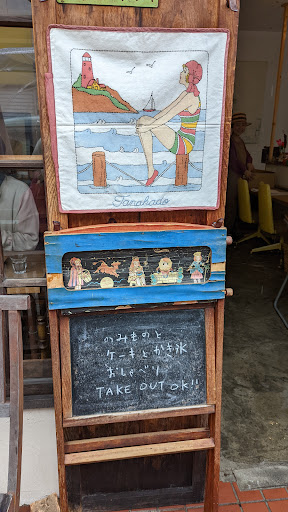 Tanahado
のみものと
ケーキとかき氷
おしゃべり
TAKE OUT OK!!